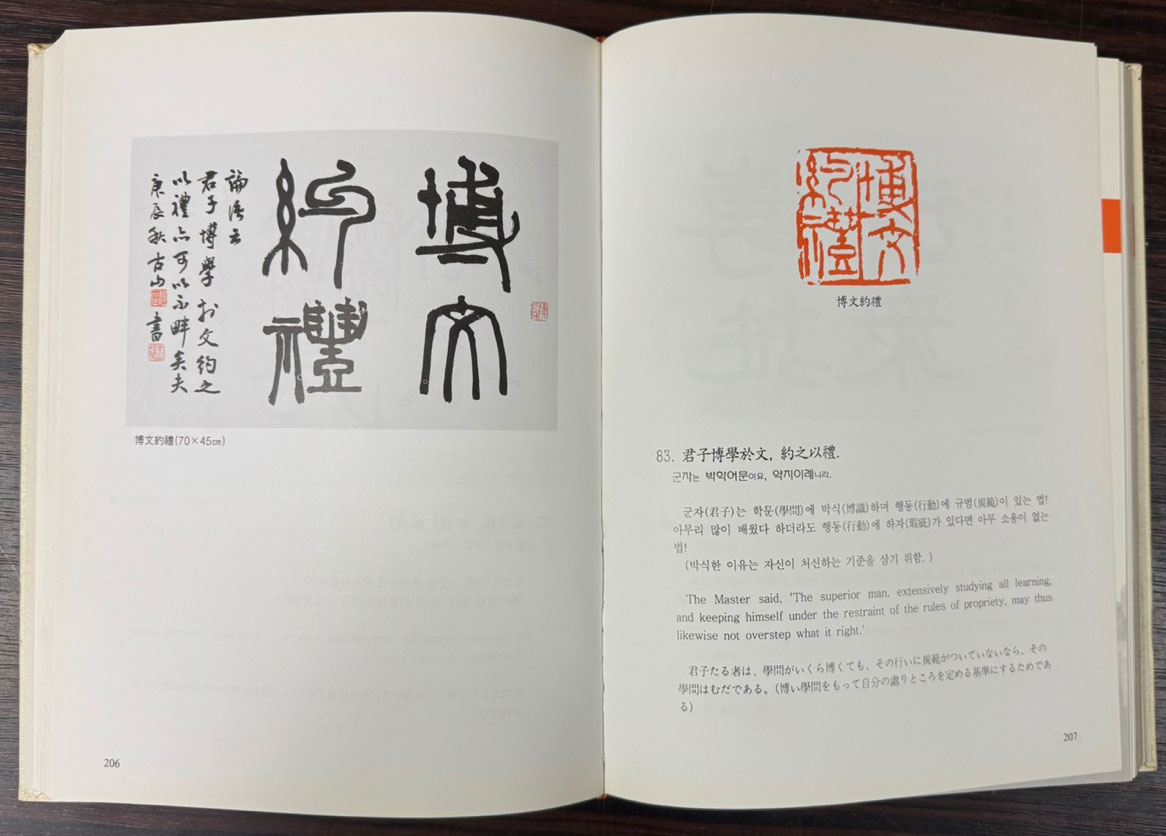 博文
約禮
論語云
君子博學於文約之
以禮亦可以弗畔矣夫
庚辰秋古山書
博文約禮(70×45㎝)
206
博文約禮
博文約禮
83. 君子博學於文, 約之以禮.
군자는 박학어문이요, 약지이례니라.
군자(君子)는 학문(學問)에 박식(博識)하며 행동(行動)에 규범(規範)이 있는 법!
아무리 많이 배웠다 하더라도 행동(行動)에 하자(瑕疵)가 있다면 아무 소용이 없는
법!
(박식한 이유는 자신이 처신하는 기준을 삼기 위함. )
The Master said, 'The superior man, extensively studying all learning,
and keeping himself under the restraint of the rules of propriety, may thus
likewise not overstep what it right.'
君子たる者は、學問がいくら博くても、その行いに規範がついていないなら、その
學問はむだである。(博い學問をもって自分の處りところを定める基準にするためであ
る)
207